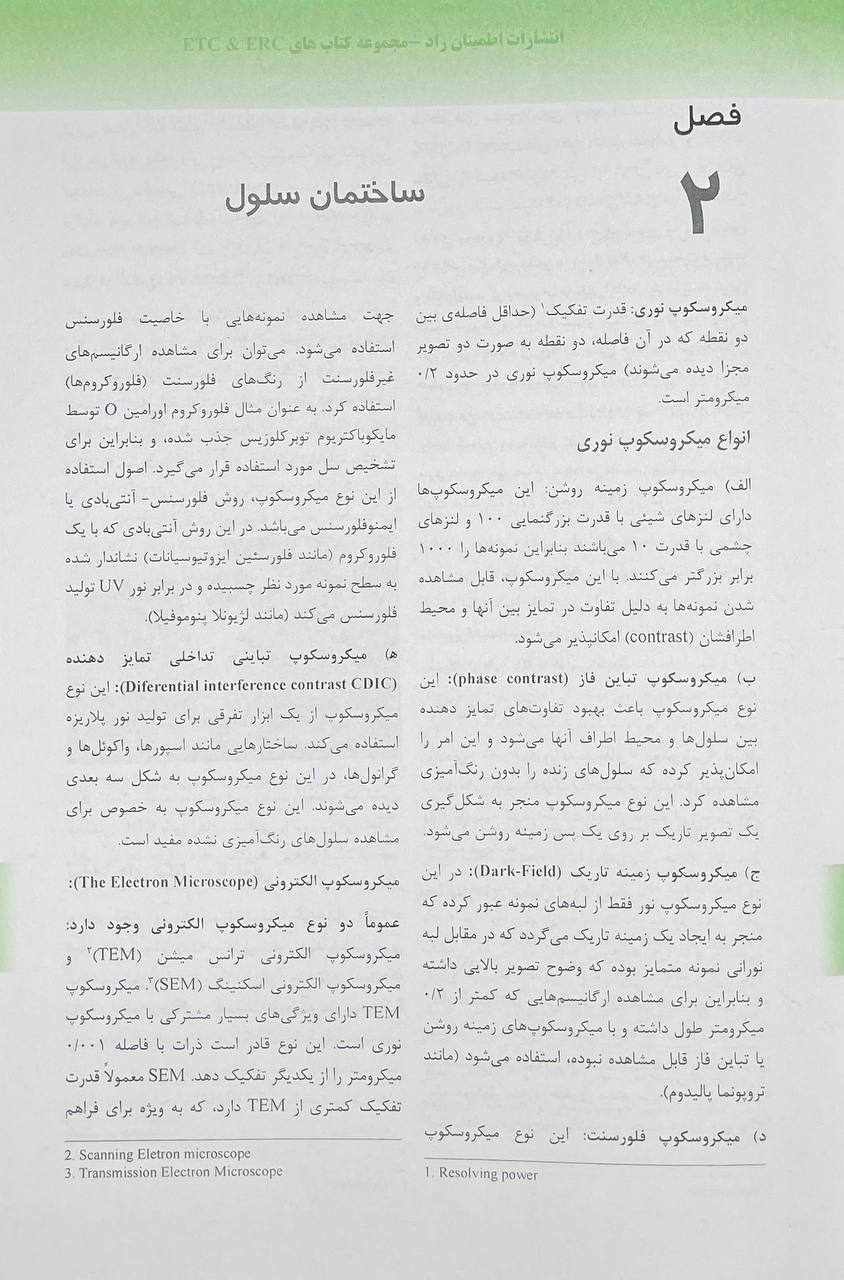 انتشارات اطمینان راد –مجموعه کتاب های ETC & ERC
فصل
۲
ساختمان سلول
میکروسکوپ نوری: قدرت تفکیک۱ (حداقل فاصله‌ی بین
دو نقطه که در آن فاصله، دو نقطه به صورت دو تصویر
مجزا دیده می‌شوند) میکروسکوپ نوری در حدود ۰/۲
میکرومتر است.
انواع میکروسکوپ نوری
الف) میکروسکوپ زمینه روشن: این میکروسکوپ‌ها
دارای لنزهای شیئی با قدرت بزرگنمایی ۱۰۰ و لنزهای
چشمی با قدرت ۱۰ می‌باشند بنابراین نمونه‌ها را ۱۰۰۰
برابر بزرگتر می‌کنند. با این میکروسکوپ، قابل مشاهده
شدن نمونه‌ها به دلیل تفاوت در تمایز بین آنها و محیط
اطرافشان (contrast) امکانپذیر می‌شود.
ب) میکروسکوپ تباین فاز (phase contrast): این
نوع میکروسکوپ باعث بهبود تفاوت‌های تمایز دهنده
بین سلول‌ها و محیط اطراف آنها می‌شود و این امر را
امکان‌پذیر کرده که سلول‌های زنده را بدون رنگ‌آمیزی
مشاهده کرد. این نوع میکروسکوپ منجر به شکل‌گیری
یک تصویر تاریک بر روی یک پس زمینه روشن می‌شود.
ج) میکروسکوپ زمینه تاریک (Dark-Field): در این
نوع میکروسکوپ نور فقط از لبه‌های نمونه عبور کرده که
منجر به ایجاد یک زمینه تاریک می‌گردد که در مقابل لبه
نورانی نمونه متمایز بوده که وضوح تصویر بالایی داشته
و بنابراین برای مشاهده ارگانیسم‌هایی که کمتر از ۰/۲
میکرومتر طول داشته و با میکروسکوپ‌های زمینه روشن
یا تباین فاز قابل مشاهده نبوده، استفاده می‌شود (مانند
تروپونما پالیدوم).
د) میکروسکوپ فلورسنت: این نوع میکروسکوپ
1. Resolving power
جهت مشاهده نمونه‌هایی با خاصیت فلورسنس
استفاده می‌شود. می‌توان برای مشاهده ارگانیسم‌های
غیرفلورسنت از رنگ‌های فلورسنت (فلوروکروم‌ها)
استفاده کرد. به عنوان مثال فلوروکروم اورامین O توسط
مایکوباکتریوم توبرکلوزیس جذب شده، و بنابراین برای
تشخیص سل مورد استفاده قرار می‌گیرد. اصول استفاده
از این نوع میکروسکوپ، روش فلورسنس- آنتی‌بادی یا
ایمنوفلورسنس می‌باشد. در این روش آنتی‌بادی که با یک
فلوروکروم (مانند فلورسئین ایزوتیوسیانات) نشاندار شده
به سطح نمونه مورد نظر چسبیده و در برابر نور UV تولید
فلورسنس می‌کند (مانند لژیونلا پنوموفیلا).
ه) میکروسکوپ تباینی تداخلی تمایز دهنده
(Diferential interference contrast CDIC): این نوع
میکروسکوپ از یک ابزار تفرقی برای تولید نور پلاریزه
استفاده می‌کند. ساختارهایی مانند اسپورها، واکوئل‌ها و
گرانول‌ها، در این نوع میکروسکوپ به شکل سه بعدی
دیده می‌شوند. این نوع میکروسکوپ به خصوص برای
مشاهده سلول‌های رنگ‌آمیزی نشده مفید است.
میکروسکوپ الکترونی (The Electron Microscope):
عموماً دو نوع میکروسکوپ الکترونی وجود دارد:
میکروسکوپ الکترونی ترانس میشن (TEM)۲ و
میکروسکوپ الکترونی اسکنینگ (SEM)۳. میکروسکوپ
TEM دارای ویژگی‌های بسیار مشترکی با میکروسکوپ
نوری است. این نوع قادر است ذرات با فاصله ۰/۰۰۱
میکرومتر را از یکدیگر تفکیک دهد. SEM معمولاً قدرت
تفکیک کمتری از TEM دارد، که به ویژه برای فراهم
2. Scanning Eletron microscope
3. Transmission Electron Microscope